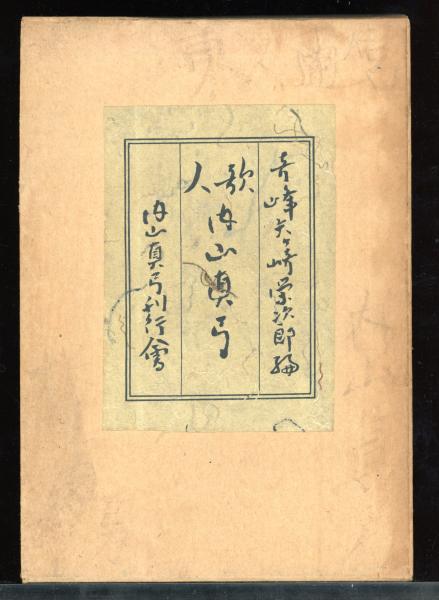 青峰矢ヶ崎栄次郎編
歌人 内山真弓
内山真弓刊行會